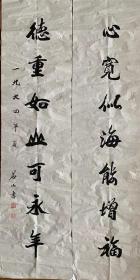 心寬似海能增福
德重如山可永年
一九九四年夏